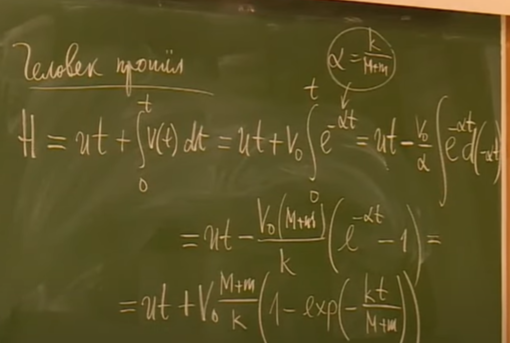 Человек прошёл
α = k/(M+m)
H = ut + ∫₀ᵗ V(t) dt = ut + V₀ ∫₀ᵗ e^(-αt) = ut - V₀/α ∫ e^(-αt) d(-αt)
= ut - V₀(M+m)/k (e^(-αt) - 1) =
= ut + V₀ (M+m)/k (1 - exp(-kt/(M+m)))